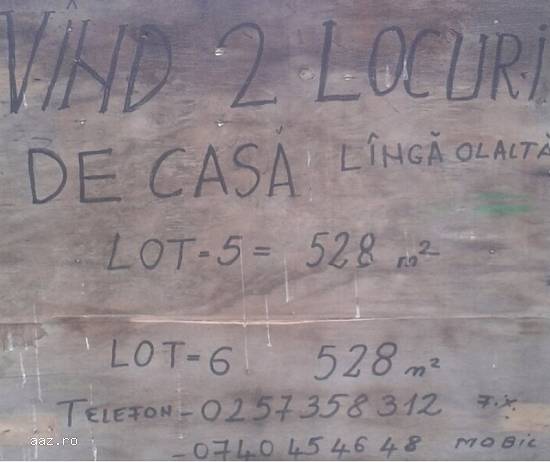 VÎND 2 LOCURI
DE CASĂ LÎNGĂ OLALTĂ
LOT-5= 528 m²
LOT-6 528 m²
TELEFON-0257358312 FIX
-0740454648 MOBIL
aaz.ro